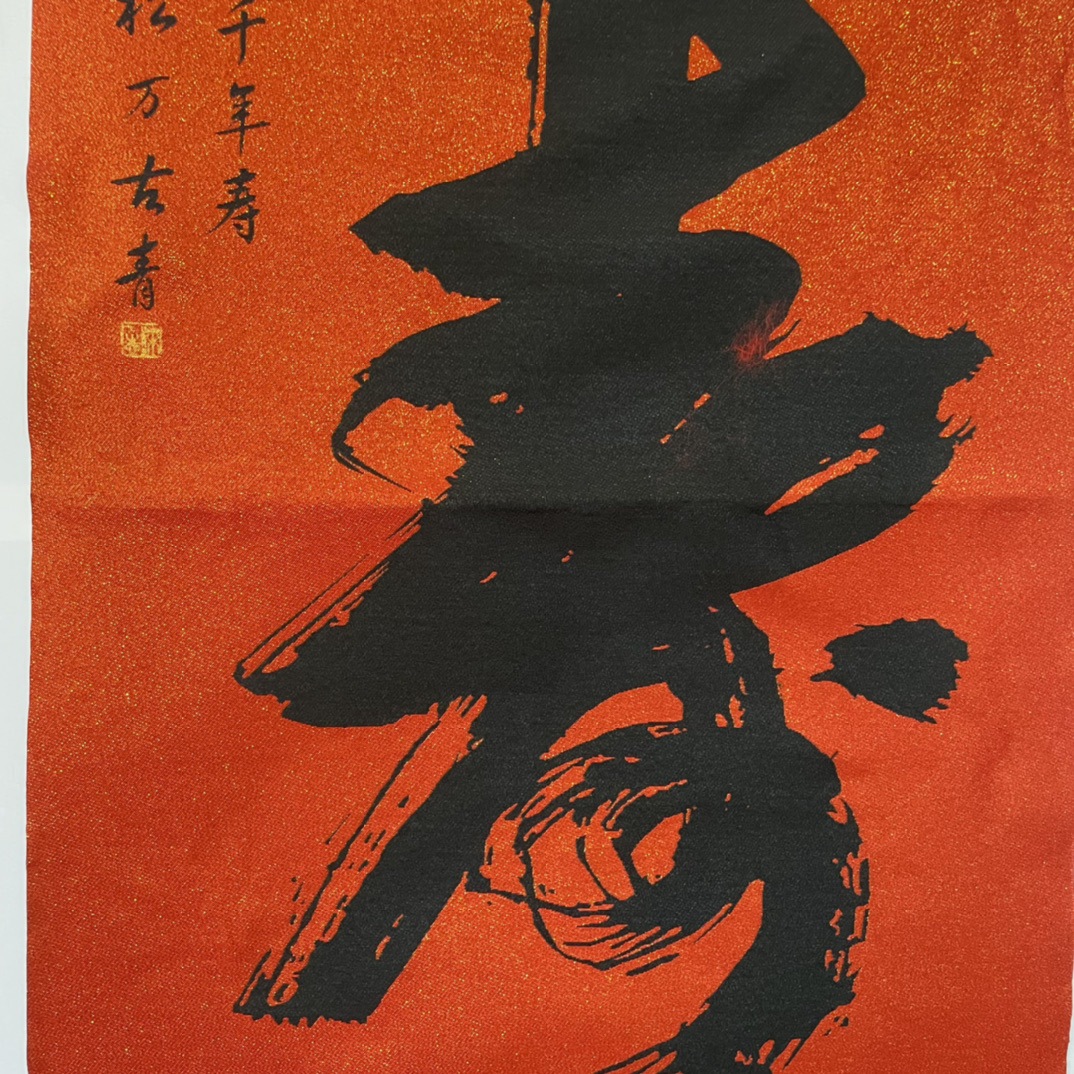 寿
千年寿
松万古青